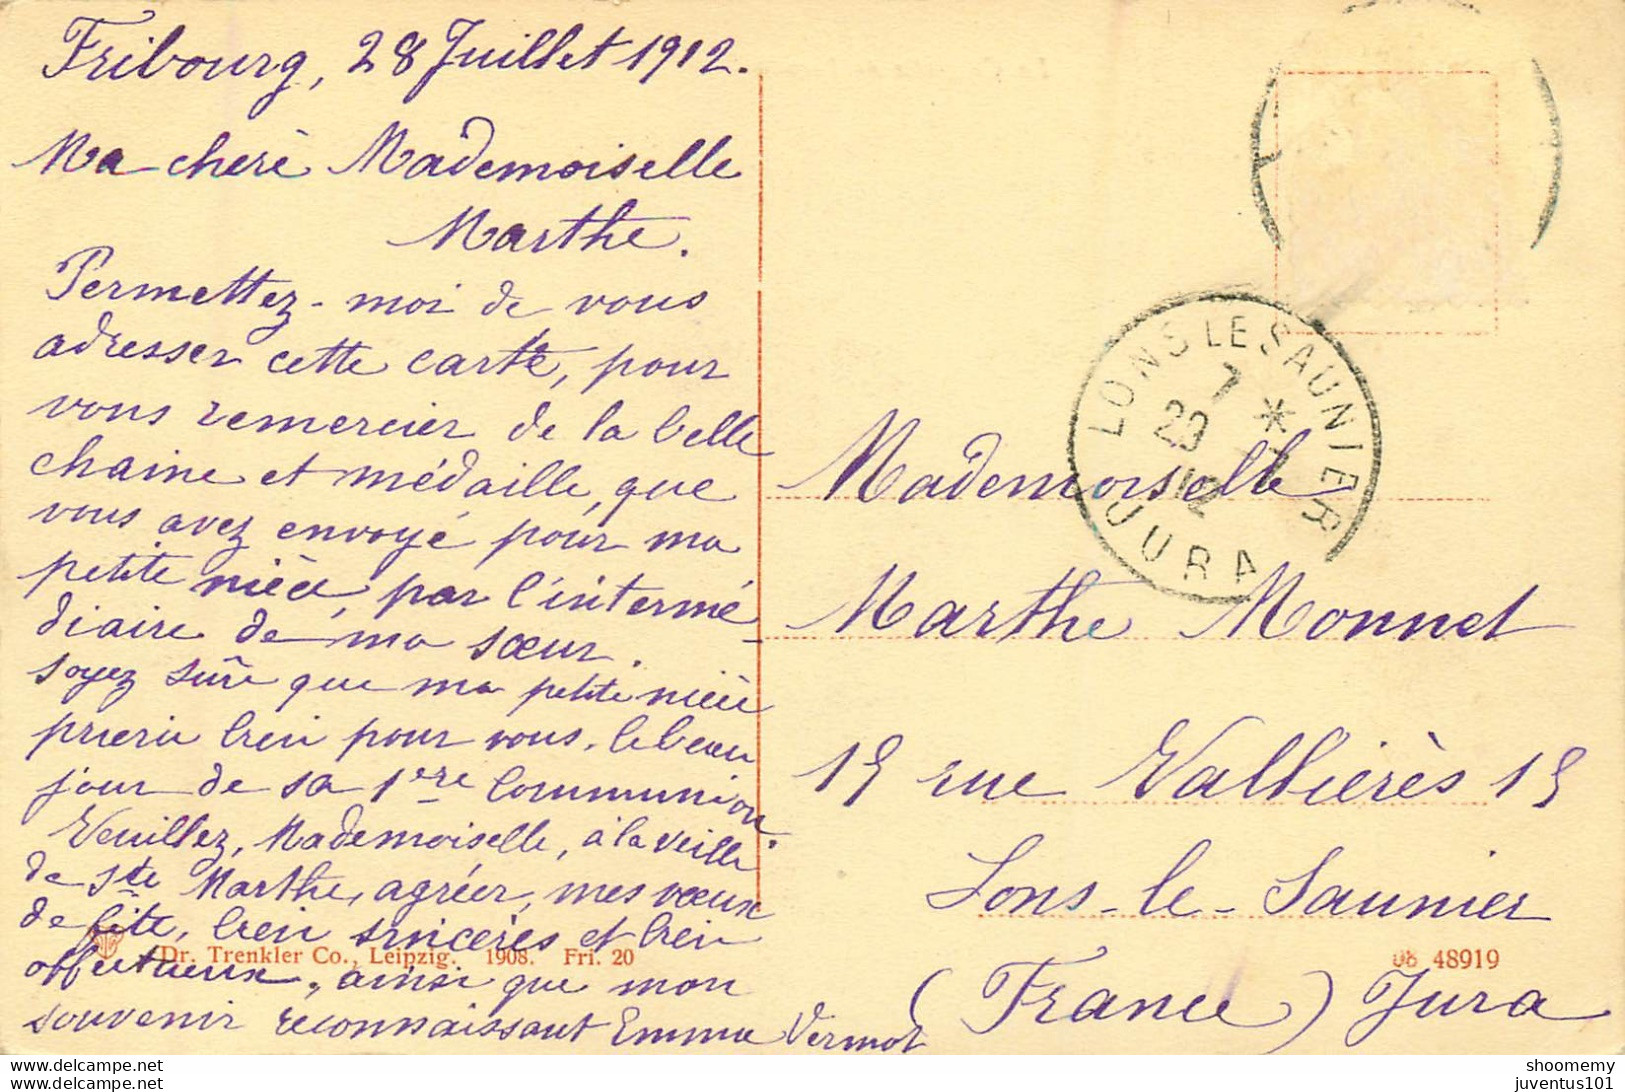 Fribourg, 28 Juillet 1912.
Ma chère Mademoiselle
Marthe.
Permettez-moi de vous
adresser cette carte, pour
vous remercier de la belle
chaine et médaille, que
vous avez envoyé pour ma
petite nièce, par l'intermé-
diaire de ma sœur.
soyez sûre que ma petite nièce
priera bien pour vous, le beau
jour de sa 1ère Communion.
Veuillez, Mademoiselle, à la veille
de Ste Marthe, agréer, mes vœux
de fête, bien sincères et bien
affectueux, ainsi que mon
souvenir reconnaissant Emma Vermot
Dr. Trenkler Co., Leipzig. 1908. Fri. 20
08 48919
LONS LE SAUNIER
7 *
29 - 7
12
JURA
Mademoiselle
Marthe Monnet
15 rue Vallières 15
Lons-le-Saunier
(France) Jura
shoomemy
juventus101